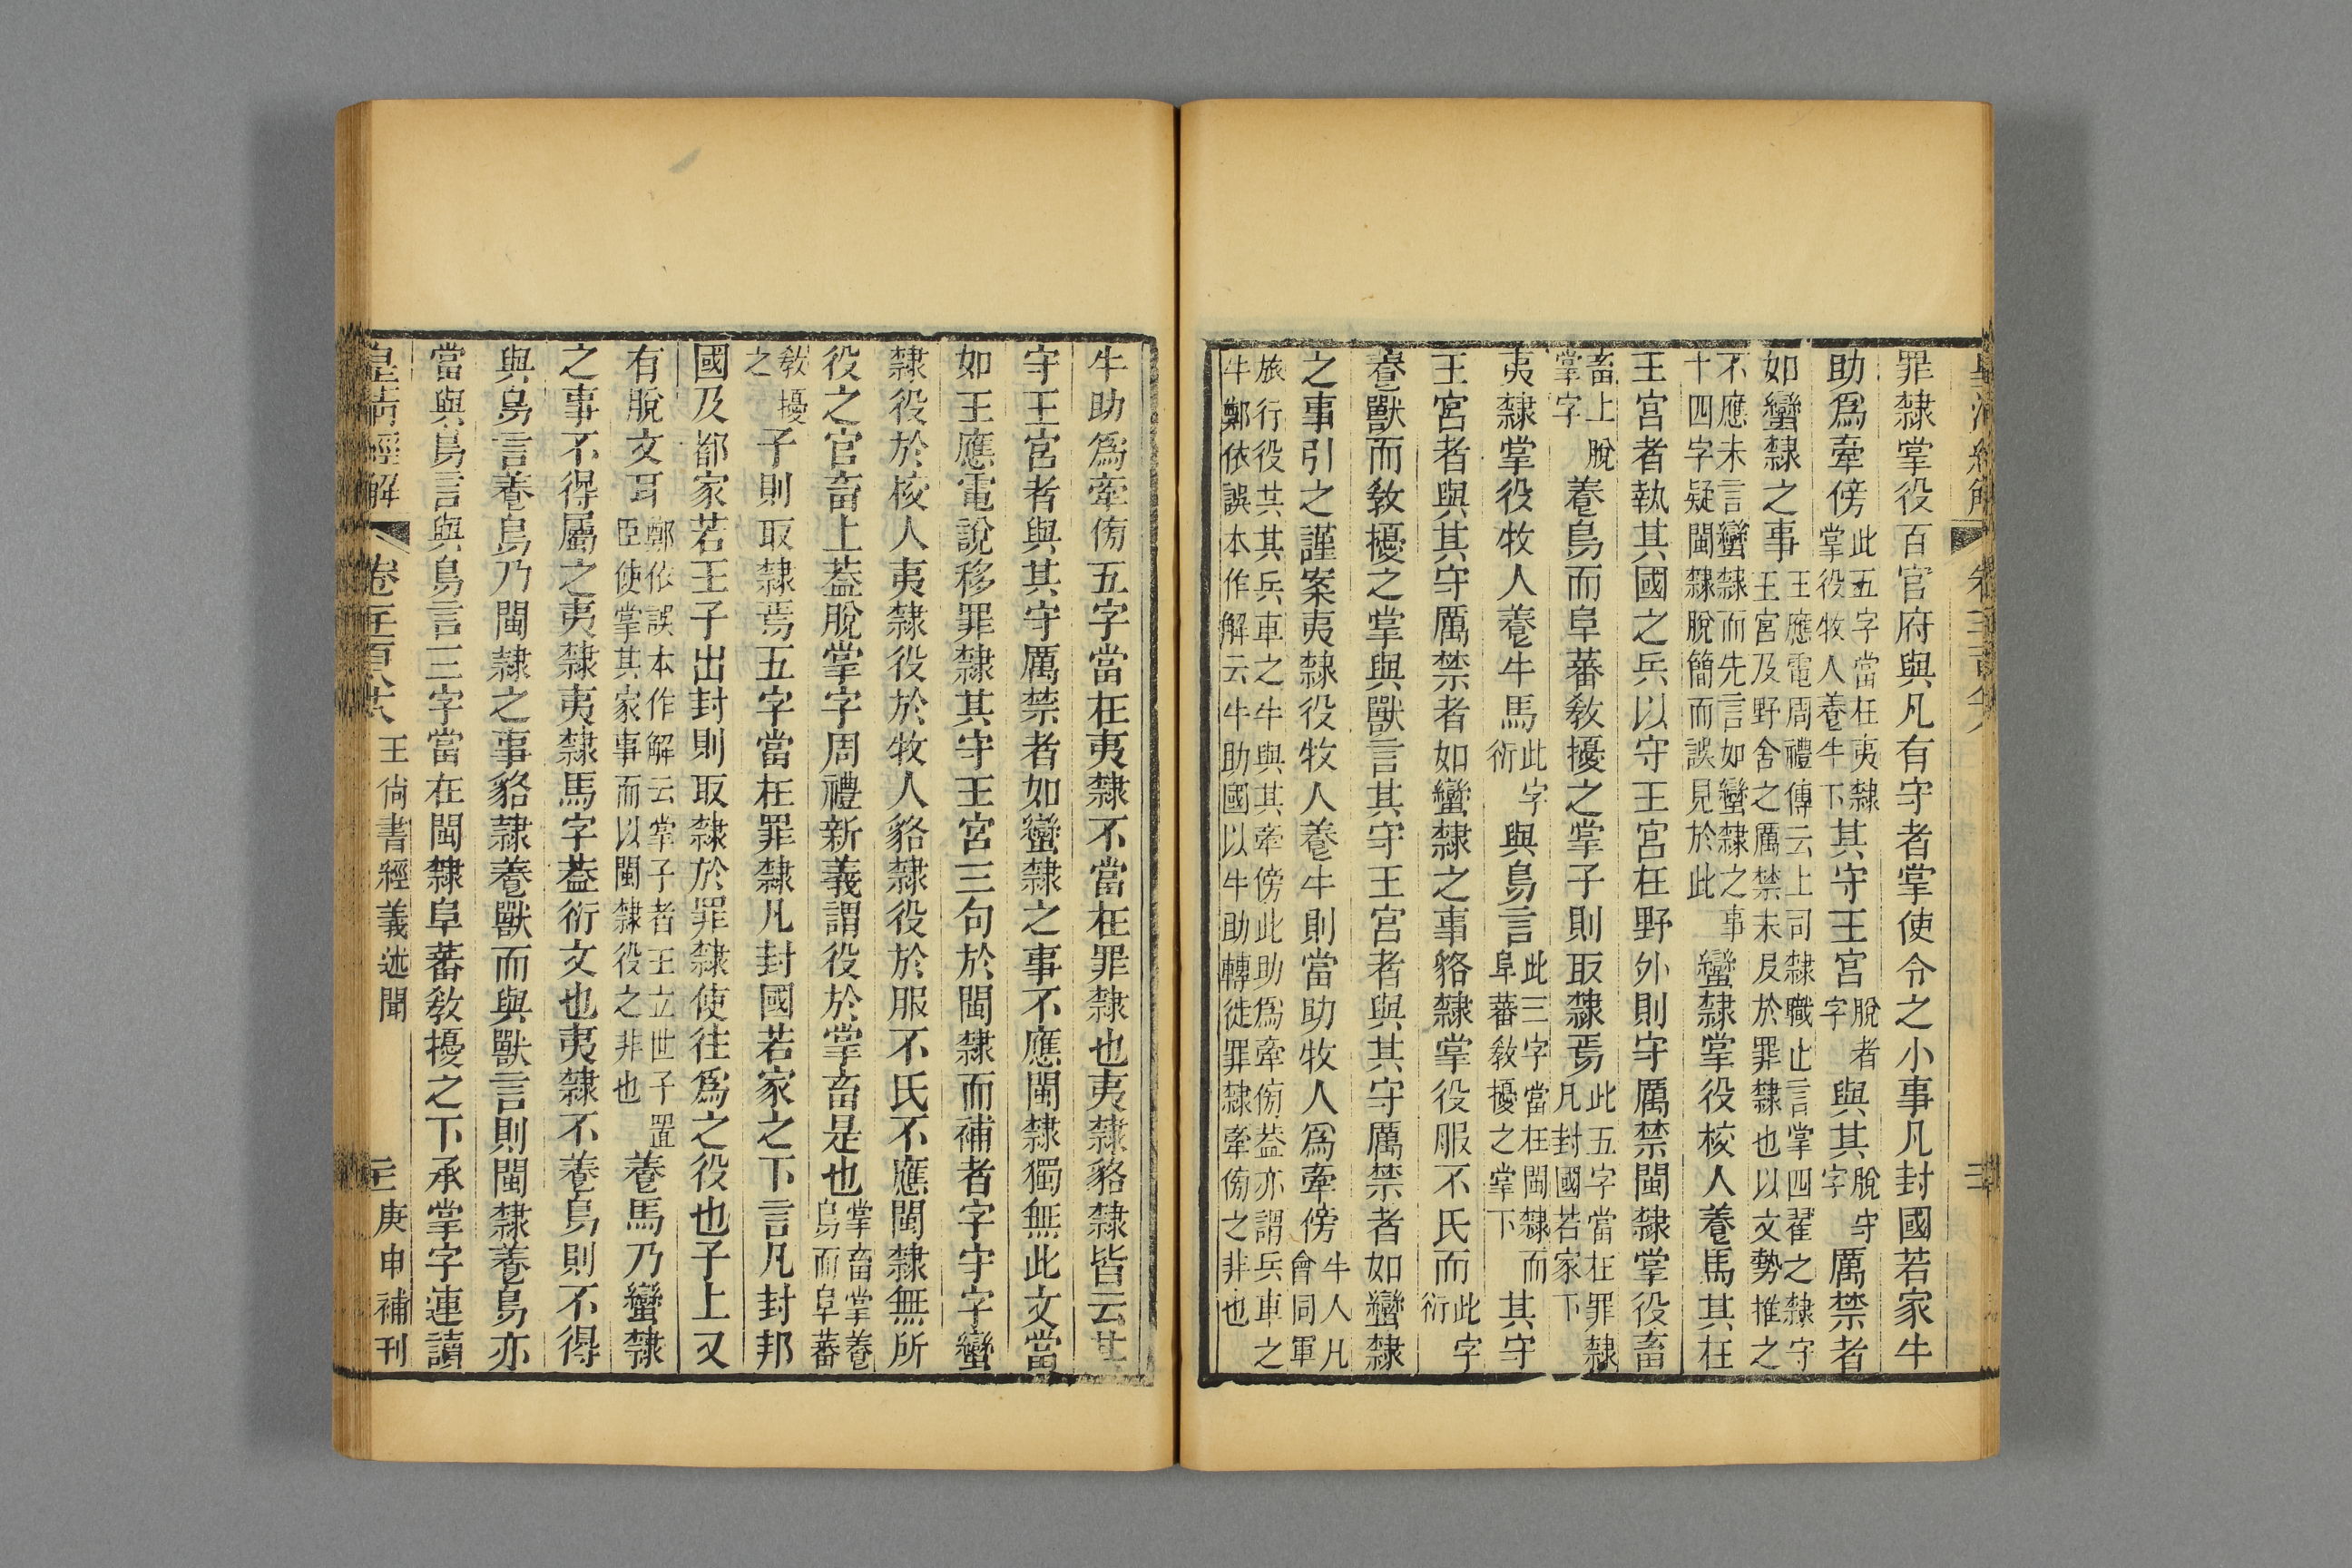 罪隸掌役百官府與凡有守者掌使令之小事凡封國若家牛
助爲牽傍此五字當在夷隸掌役牧人養牛下其守王宮脫者字與其脫守字厲禁者
如蠻隸之事王應電周禮傳云上司隸職止言掌四翟之隸守王宮及野舍之厲禁未及於罪隸也以文勢推之
不應未言蠻隸而先言如蠻隸之事十四字疑閩隸脫簡而誤見於此蠻隸掌役校人養馬其在
王宮者執其國之兵以守王宮在野外則守厲禁閩隸掌役畜
畜上脫掌字養鳥而阜蕃敎擾之掌子則取隸焉此五字當在罪隸凡封國若家下
夷隸掌役牧人養牛馬此字衍與鳥言此三字當在閩隸而阜蕃敎擾之掌下其守
王宮者與其守厲禁者如蠻隸之事貉隸掌役服不氏而此字衍
養獸而敎擾之掌與獸言其守王宮者與其守厲禁者如蠻隸
之事引之謹案夷隸役牧人養牛則當助牧人爲牽傍牛人凡會同軍
旅行役共其兵車之牛與其牽傍此助爲牽傍葢亦謂兵車之牛鄭依誤本作解云牛助國以牛助轉徙罪隸牽傍之非也
牛助爲牽傍五字當在夷隸不當在罪隸也夷隸貉隸皆云其
守王宮者與其守厲禁者如蠻隸之事不應閩隸獨無此文當
如王應電說移罪隸其守王宮三句於閩隸而補者字守字蠻
隸役於校人夷隸役於牧人貉隸役於服不氏不應閩隸無所
役之官畜上葢脫掌字周禮新義謂役於掌畜是也掌畜掌養鳥而阜蕃
敎擾之子則取隸焉五字當在罪隸凡封國若家之下言凡封邦
國及都家若王子出封則取隸於罪隸使往爲之役也子上又
有脫文耳鄭依誤本作解云掌子者王立世子置臣使掌其家事而以閩隸役之非也養馬乃蠻隸
之事不得屬之夷隸夷隸馬字葢衍文也夷隸不養鳥則不得
與鳥言養鳥乃閩隸之事貉隸養獸而與獸言則閩隸養鳥亦
當與鳥言與鳥言三字當在閩隸阜蕃敎擾之下承掌字連讀
皇淸經解 卷 王尙書經義述聞 庚申補刊